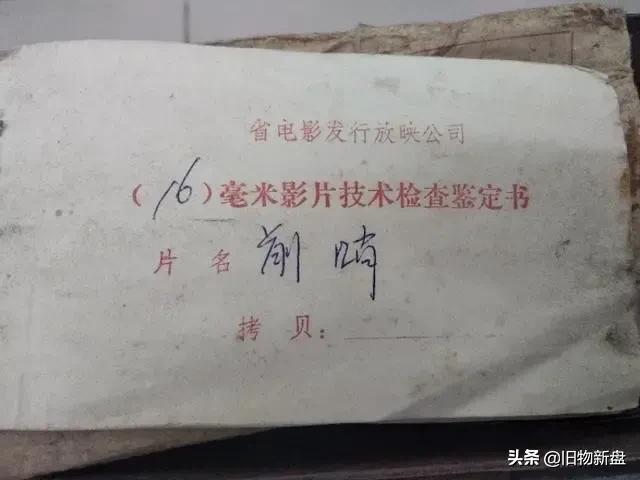 省电影发行放映公司
(16)毫米影片技术检查鉴定书
片 名 前 哨
拷 贝：
头条 @旧物新盘